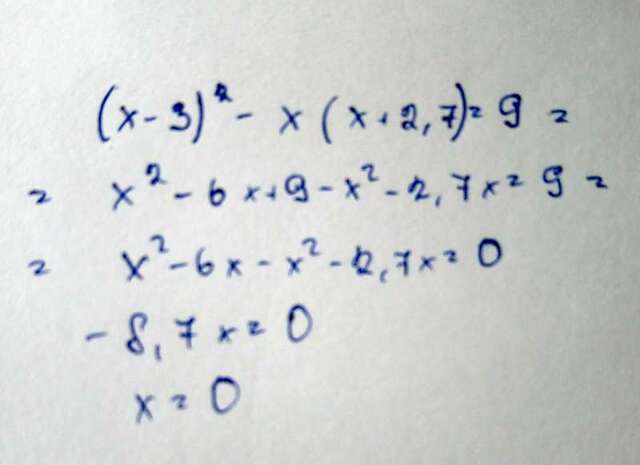 (x-3)² - x(x+2,7)=9 =
= x² - 6x+9-x²-2,7x=9 =
= x²-6x-x²-2,7x=0
-8,7x=0
x=0